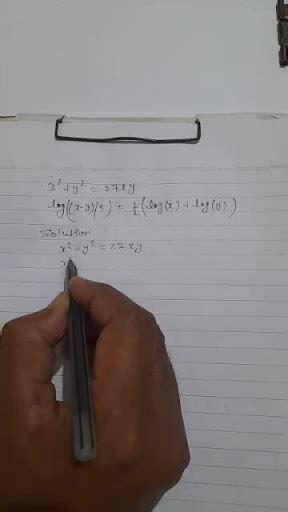 x²+y² = 27xy
log((x-y)/5) = 1/2(log(x) + log(y))
Solution
x²+y² = 27xy
x